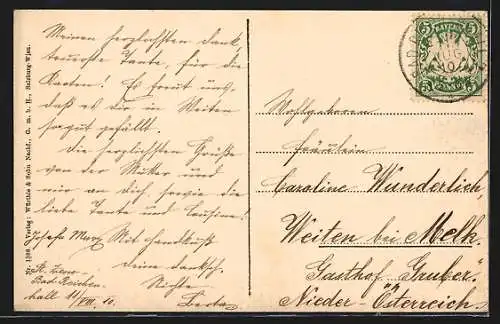 Meinen herzlichsten Dank,
teuerste Tante, für die
Karten! Es freut uns,
daß es dir in Weiten
so gut gefällt.
Die herzlichsten Grüße
von der Mutter und
mir an dich, sowie die
liebe Tante und Cousine!
Mit Handkuß
deine dankb.
Nichte
Berta
Bad Reichen
hall 11/VIII. 10.
Nr. 1198 Verlag: Würthle & Sohn Nachf., G. m. b. H., Salzburg-Wien.
5 BAYERN 5
Wohlgeboren
Fräulein
Caroline Wunderlich,
Weiten bei Melk.
Gasthof „Gruber“
Nieder-Österreich.